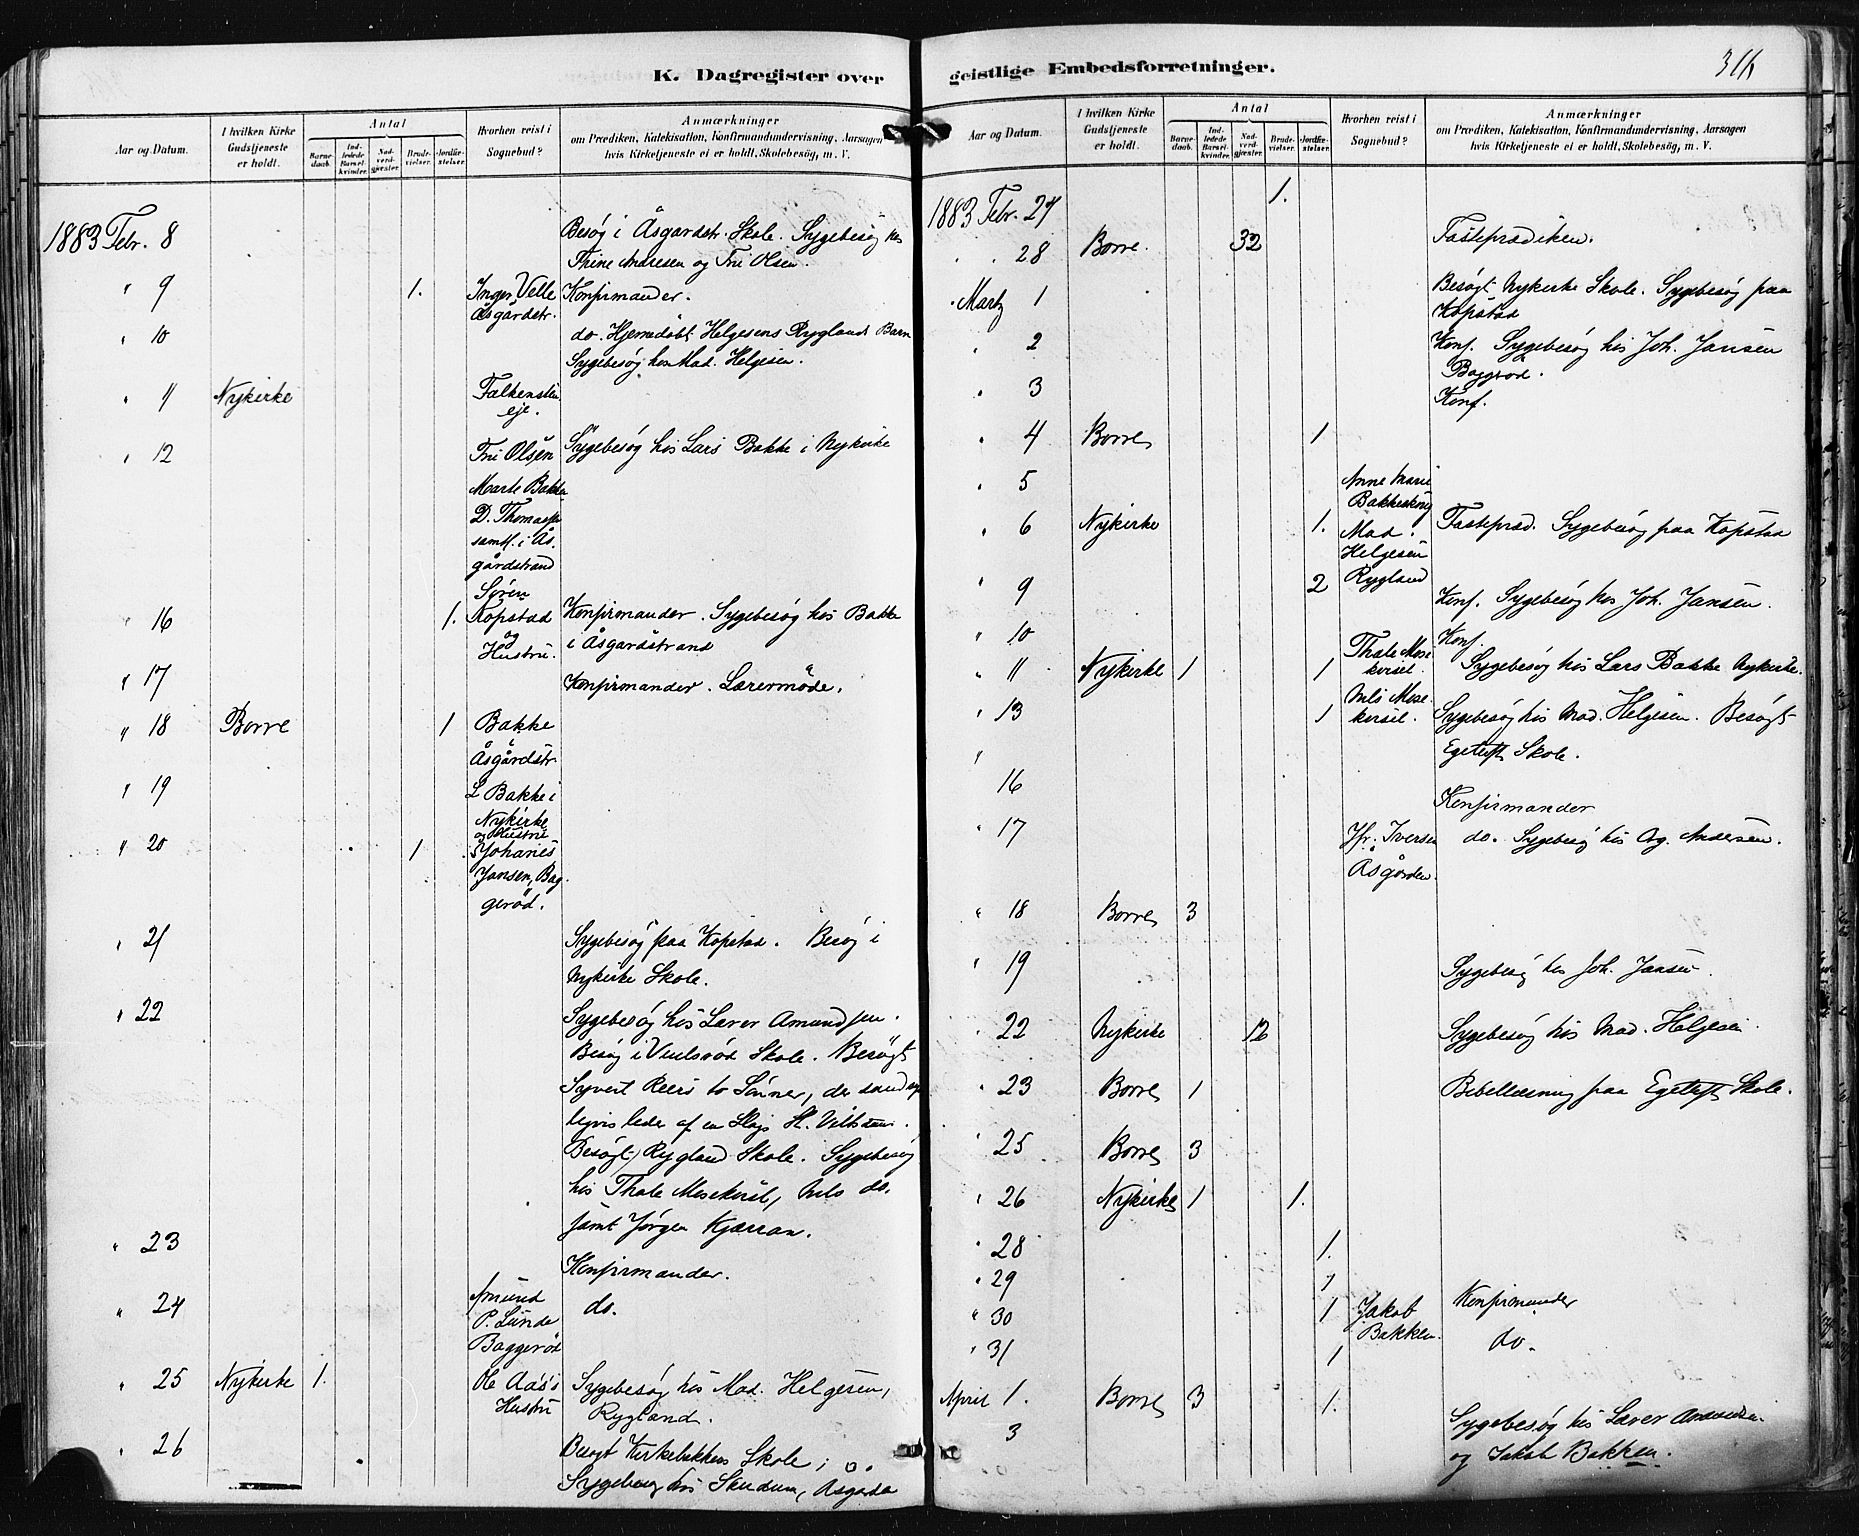 K. Dagregister over
Aar og Datum.
I hvilken Kirke Gudstjeneste er holdt.
Antal
Barnedaab.
Indledede Barselkvinder.
Nadverdgjæster.
Brudevielser.
Jordfæstelser.
Hvorhen reist i Sognebud?
Anmærkninger
om Prædiken, Katekisation, Konfirmandundervisning, Aarsagen
hvis Kirketjeneste ei er holdt, Skolebesøg, m. V.
1883 Febr. 8
Besøg i Åsgardstr. Skole. Sygebesøg hos
Trine Andresen og Fru Olsen.
" 9 1. Inger Velle Konfirmander.
Åsgårdstr.
" 10 do. Hjemmedøbt Helgesens Rygland Barn
Sygebesøg hos Mad. Helgesen.
" 11 Nykirke Falkensten
eje.
" 12 Fru Olsen Sygebesøg hos Lars Bakke i Nykirke
Marte Bakke
D. Thomassen
samtl. i Ås-
gårdstrand
" 16 1. Søren
Kopstad Konfirmander. Sygebesøg hos Bakke
og
Hustru. i Åsgardstrand
" 17 Konfirmander. Lærermøde.
" 18 Borre 1 Bakke
i
Åsgårdstr.
" 19 L Bakke i
Nykirke
og Hustru
" 20 1 Johanes
Jansen, Bag-
gerød.
" 21 Sygebesøg paa Kopstad. Besøg i
Nykirke Skole.
" 22 Sygebesøg hos Lærer Amundsen.
Besøg i Skole. Besøgt
Syvert to Sønner, der
ligvis leder af en Slags St. Veitsdans.
Besøgt Rygland Skole. Sygebesøg
hos Thale Mosekersil, Nils do.
samt Jørgen Kjærran.
" 23
Konfirmander.
" 24 Amund do.
P. Lunde
Baggerød
" 25 Nykirke 1. Ole Aas's Sygebesøg hos Mad. Helgesen,
Hustru Rygland.
" 26 Besøgt Kirkebakkens Skole i
Sygebesøg hos Skudum, Åsgarden
geistlige Embedsforretninger.
316
Aar og Datum.
I hvilken Kirke Gudstjeneste er holdt.
Antal
Barnedaab.
Indledede Barselkvinder.
Nadverdgjæster.
Brudevielser.
Jordfæstelser.
Hvorhen reist i Sognebud?
Anmærkninger
om Prædiken, Katekisation, Konfirmandundervisning, Aarsagen
hvis Kirketjeneste ei er holdt, Skolebesøg, m. V.
1883 Febr. 27 1.
" " 28 Borre. 32 Fasteprædiken.
" Marts 1 Besøgt Nykirke Skole. Sygebesøg paa
Kopstad
" 2 Konf. Sygebesøg hos Joh. Jansen
Baggerød.
" 3 Konf.
" 4 Borre 1
" 5 Anne Marie
Bakkeskog
" 6 Nykirke 1. Mad. Fastepræd. Sygebesøg paa Kopstad
Helgesen
Rygland
" 9 2
Konf. Sygebesøg hos Joh. Jansen.
" 10 Konf.
" 11 Nykirke 1 1 Thale Mose-
kersil. Sygebesøg hos Lars Bakke Nykirke.
" 13 1 Nils Mose-
kersil. Sygebesøg hos Mad. Helgesen. Besøgt
" Egetuft Skole.
16 Konfirmander
" 17 Hr. Iversen do. Sygebesøg hos Aug. Andersen.
Åsgården.
" 18 Borre 3
" 19 Sygebesøg hos Joh. Jansen.
" 22 Nykirke 12 Sygebesøg hos Mad. Helgesen.
" 23 Borre 1 Bibellæsning paa Egetuft Skole.
" 25 Borre 3
" 26 Nykirke 1 1.
" 28 1.
" 29 1
" 30 1 Jakob Konfirmander
Bakken.
" 31 1 do.
April 1. Borre 3 1.
3 Sygebesøg hos Lærer Amundsen
og Jakob Bakken.